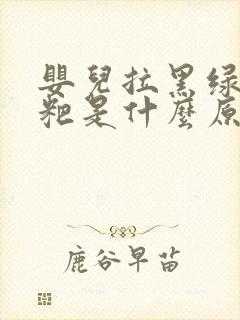 嬰兒拉黑绿
粑是什麼原
鹿谷早苗